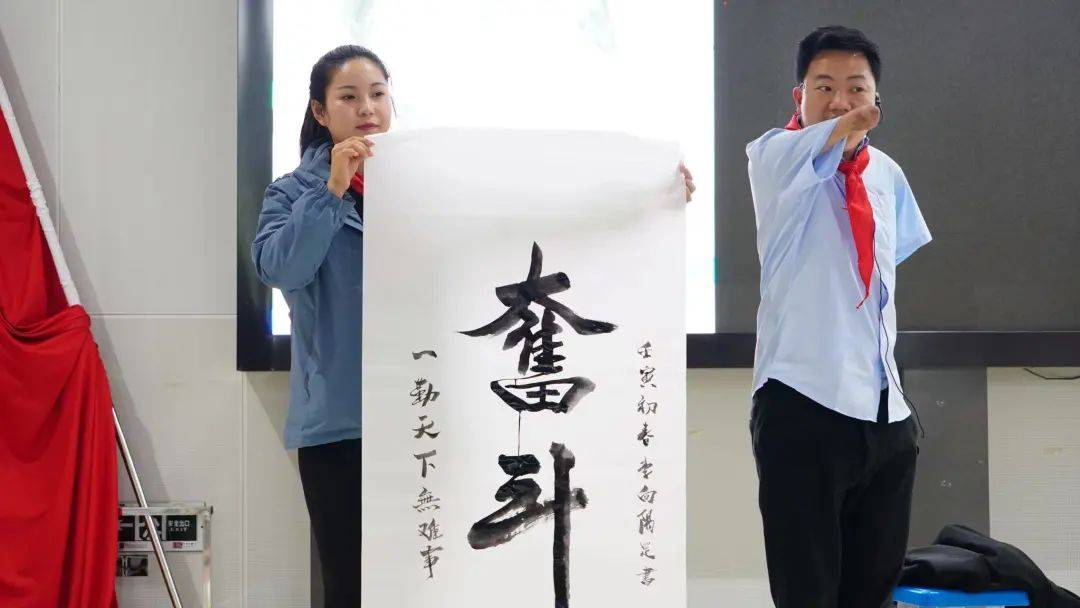 壬寅初春李向阳足書
奮斗
一勤天下無难事
安全出口